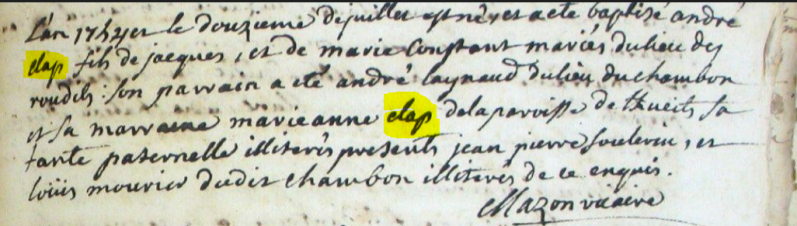 L'an 1754 et le douzieme de juillet est né, et a eté baptisé andré
clap fils de jacques, et de marie Constant mariés du lieu des
roudils : son parrain a eté andré laynaud du lieu du chambon
et sa marraene marie anne clap de la paroisse de thueits sa
tante paternelle illiterés presents jean pierre souleriu, et
loüis mourier du dit chambon illiterés de ce enquis.
Mazon vicaire